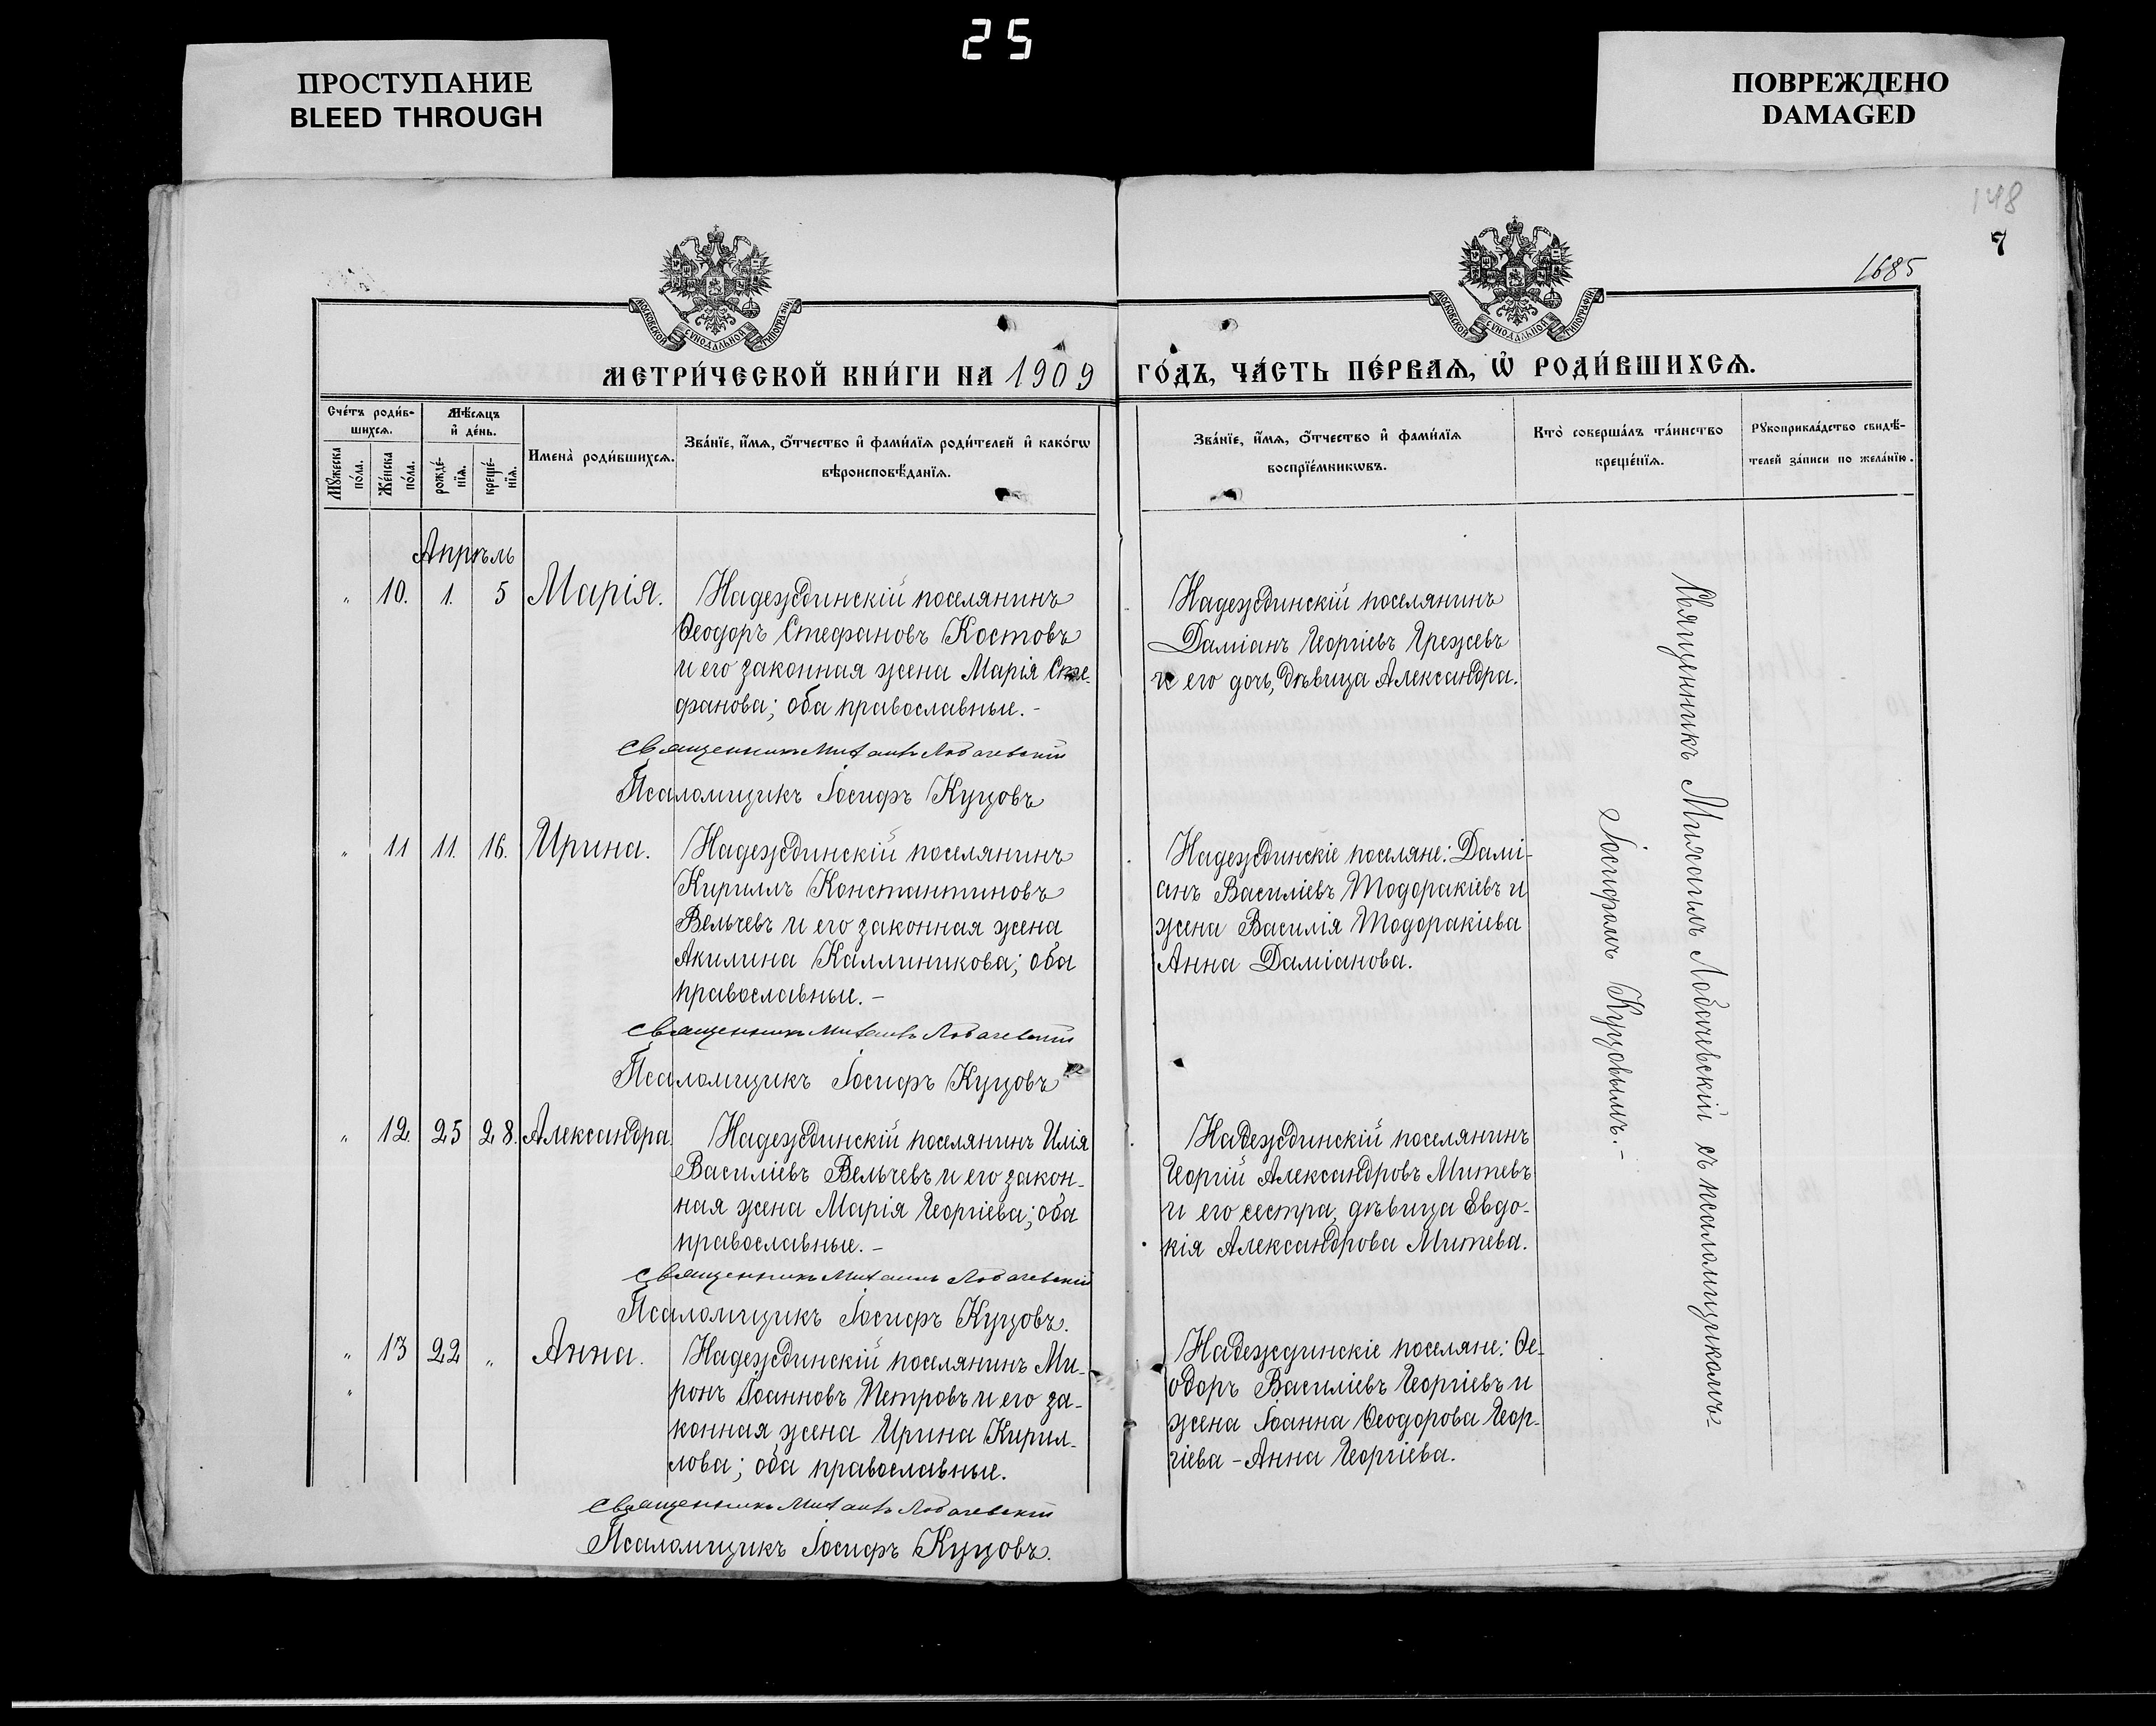 25
ПРОСТУПАНИЕ
BLEED THROUGH
ПОВРЕЖДЕНО
DAMAGED
148
7
1685
МОСКОВСКОЙ СѴНОДАЛЬНОЙ ТИПОГРАФІИ
МОСКОВСКОЙ СѴНОДАЛЬНОЙ ТИПОГРАФІИ
МЕТРИ́ЧЕСКОЙ КНИ́ГИ НА 1909
ГО́ДЪ, ЧА́СТЬ ПЕ́РВАѦ, Ѽ РОДИ́ВШИХСѦ.
Сче́тъ роди́в-
шихсѧ.
Мѣ́сѧцъ
и҆ де́нь.
Мꙋ́жеска
по́ла.
Же́нска
по́ла.
рожде́-
нїѧ.
креще́-
нїѧ.
Имена̀ роди́вшихсѧ.
Зва́нїе, и҆́мѧ, ѻ҆́тчество и҆ фами́лїѧ роди́телей и҆ како́гѡ
вѣроисповѣ́данїѧ.
Зва́нїе, и҆́мѧ, ѻ҆́тчество и҆ фами́лїѧ
воспрїе́мникѡвъ.
Кто̀ соверша́лъ та́инство
креще́нїѧ.
Рꙋкоприкла́дство свидѣ́-
телей за́писи по жела́нїю.
Апрѣль
" 10. 1. 5 Марія.
Надеждинскій поселянинъ
Ѳеодоръ Стефановъ Костовъ
и его законная жена Марія Сте-
фанова; оба православные.-
Священникъ Михаилъ Лобачевскій
Псаломщикъ Іосифъ Куцовъ
Надеждинскій поселянинъ
Даміанъ Георгіевъ Грежевъ
и его дочь, дѣвица Александра.
" 11 11. 16. Ирина.
Надеждинскій поселянинъ
Кириллъ Константиновъ
Вельчевъ и его законная жена
Акилина Каллиникова; оба
православные.-
Священникъ Михаилъ Лобачевскій
Псаломщикъ Іосифъ Куцовъ
Надеждинскіе поселяне: Дамі-
анъ Василіевъ Тодоракіевъ и
жена Василія Тодоракіева
Анна Даміанова.
" 12. 25 28. Александра.
Надеждинскій поселянинъ Илія
Василіевъ Вельчевъ и его закон-
ная жена Марія Георгіева; оба
православные.-
Священникъ Михаилъ Лобачевскій
Псаломщикъ Іосифъ Куцовъ.
Надеждинскій поселянинъ
Георгій Александровъ Митевъ
и его сестра, дѣвица Евдо-
кія Александрова Митева.
" 13 22 " Анна.
"
Надеждинскій поселянинъ Ми-
ронъ Іоанновъ Петровъ и его за-
конная жена Ирина Кирил-
лова; оба православные.
Священникъ Михаилъ Лобачевскій
Псаломщикъ Іосифъ Куцовъ.
Надеждинскіе поселяне: Ѳе-
одоръ Василіевъ Георгіевъ и
жена Іоанна Ѳеодорова Геор-
гіева - Анна Георгіева.
Священникъ Михаилъ Лобачевскій съ псаломщикомъ
Іосифомъ Куцовымъ.-